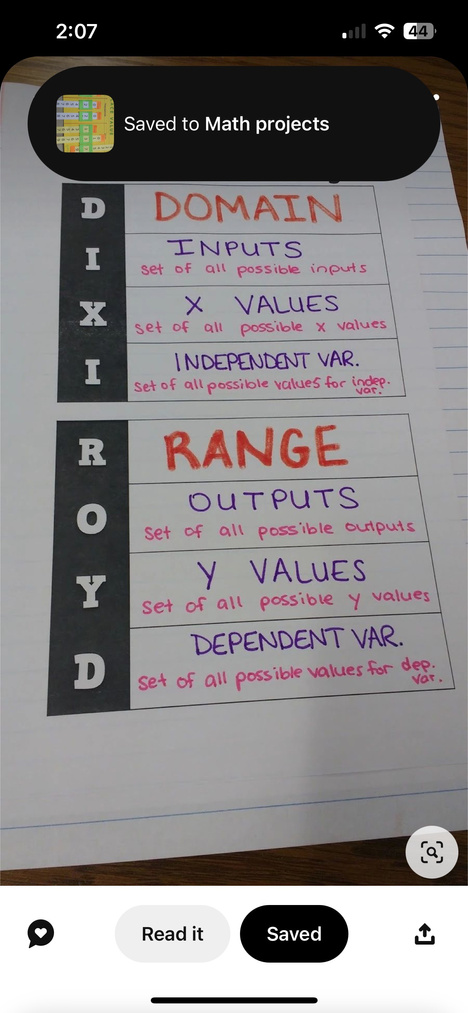 2:07
44
Saved to Math projects
D
DOMAIN
I
INPUTS
set of all possible inputs
X
X VALUES
set of all possible x values
I
INDEPENDENT VAR.
set of all possible values for indep.
var.
R
RANGE
O
OUTPUTS
set of all possible outputs
Y
Y VALUES
set of all possible y values
D
DEPENDENT VAR.
set of all possible values for dep.
var.
Read it
Saved